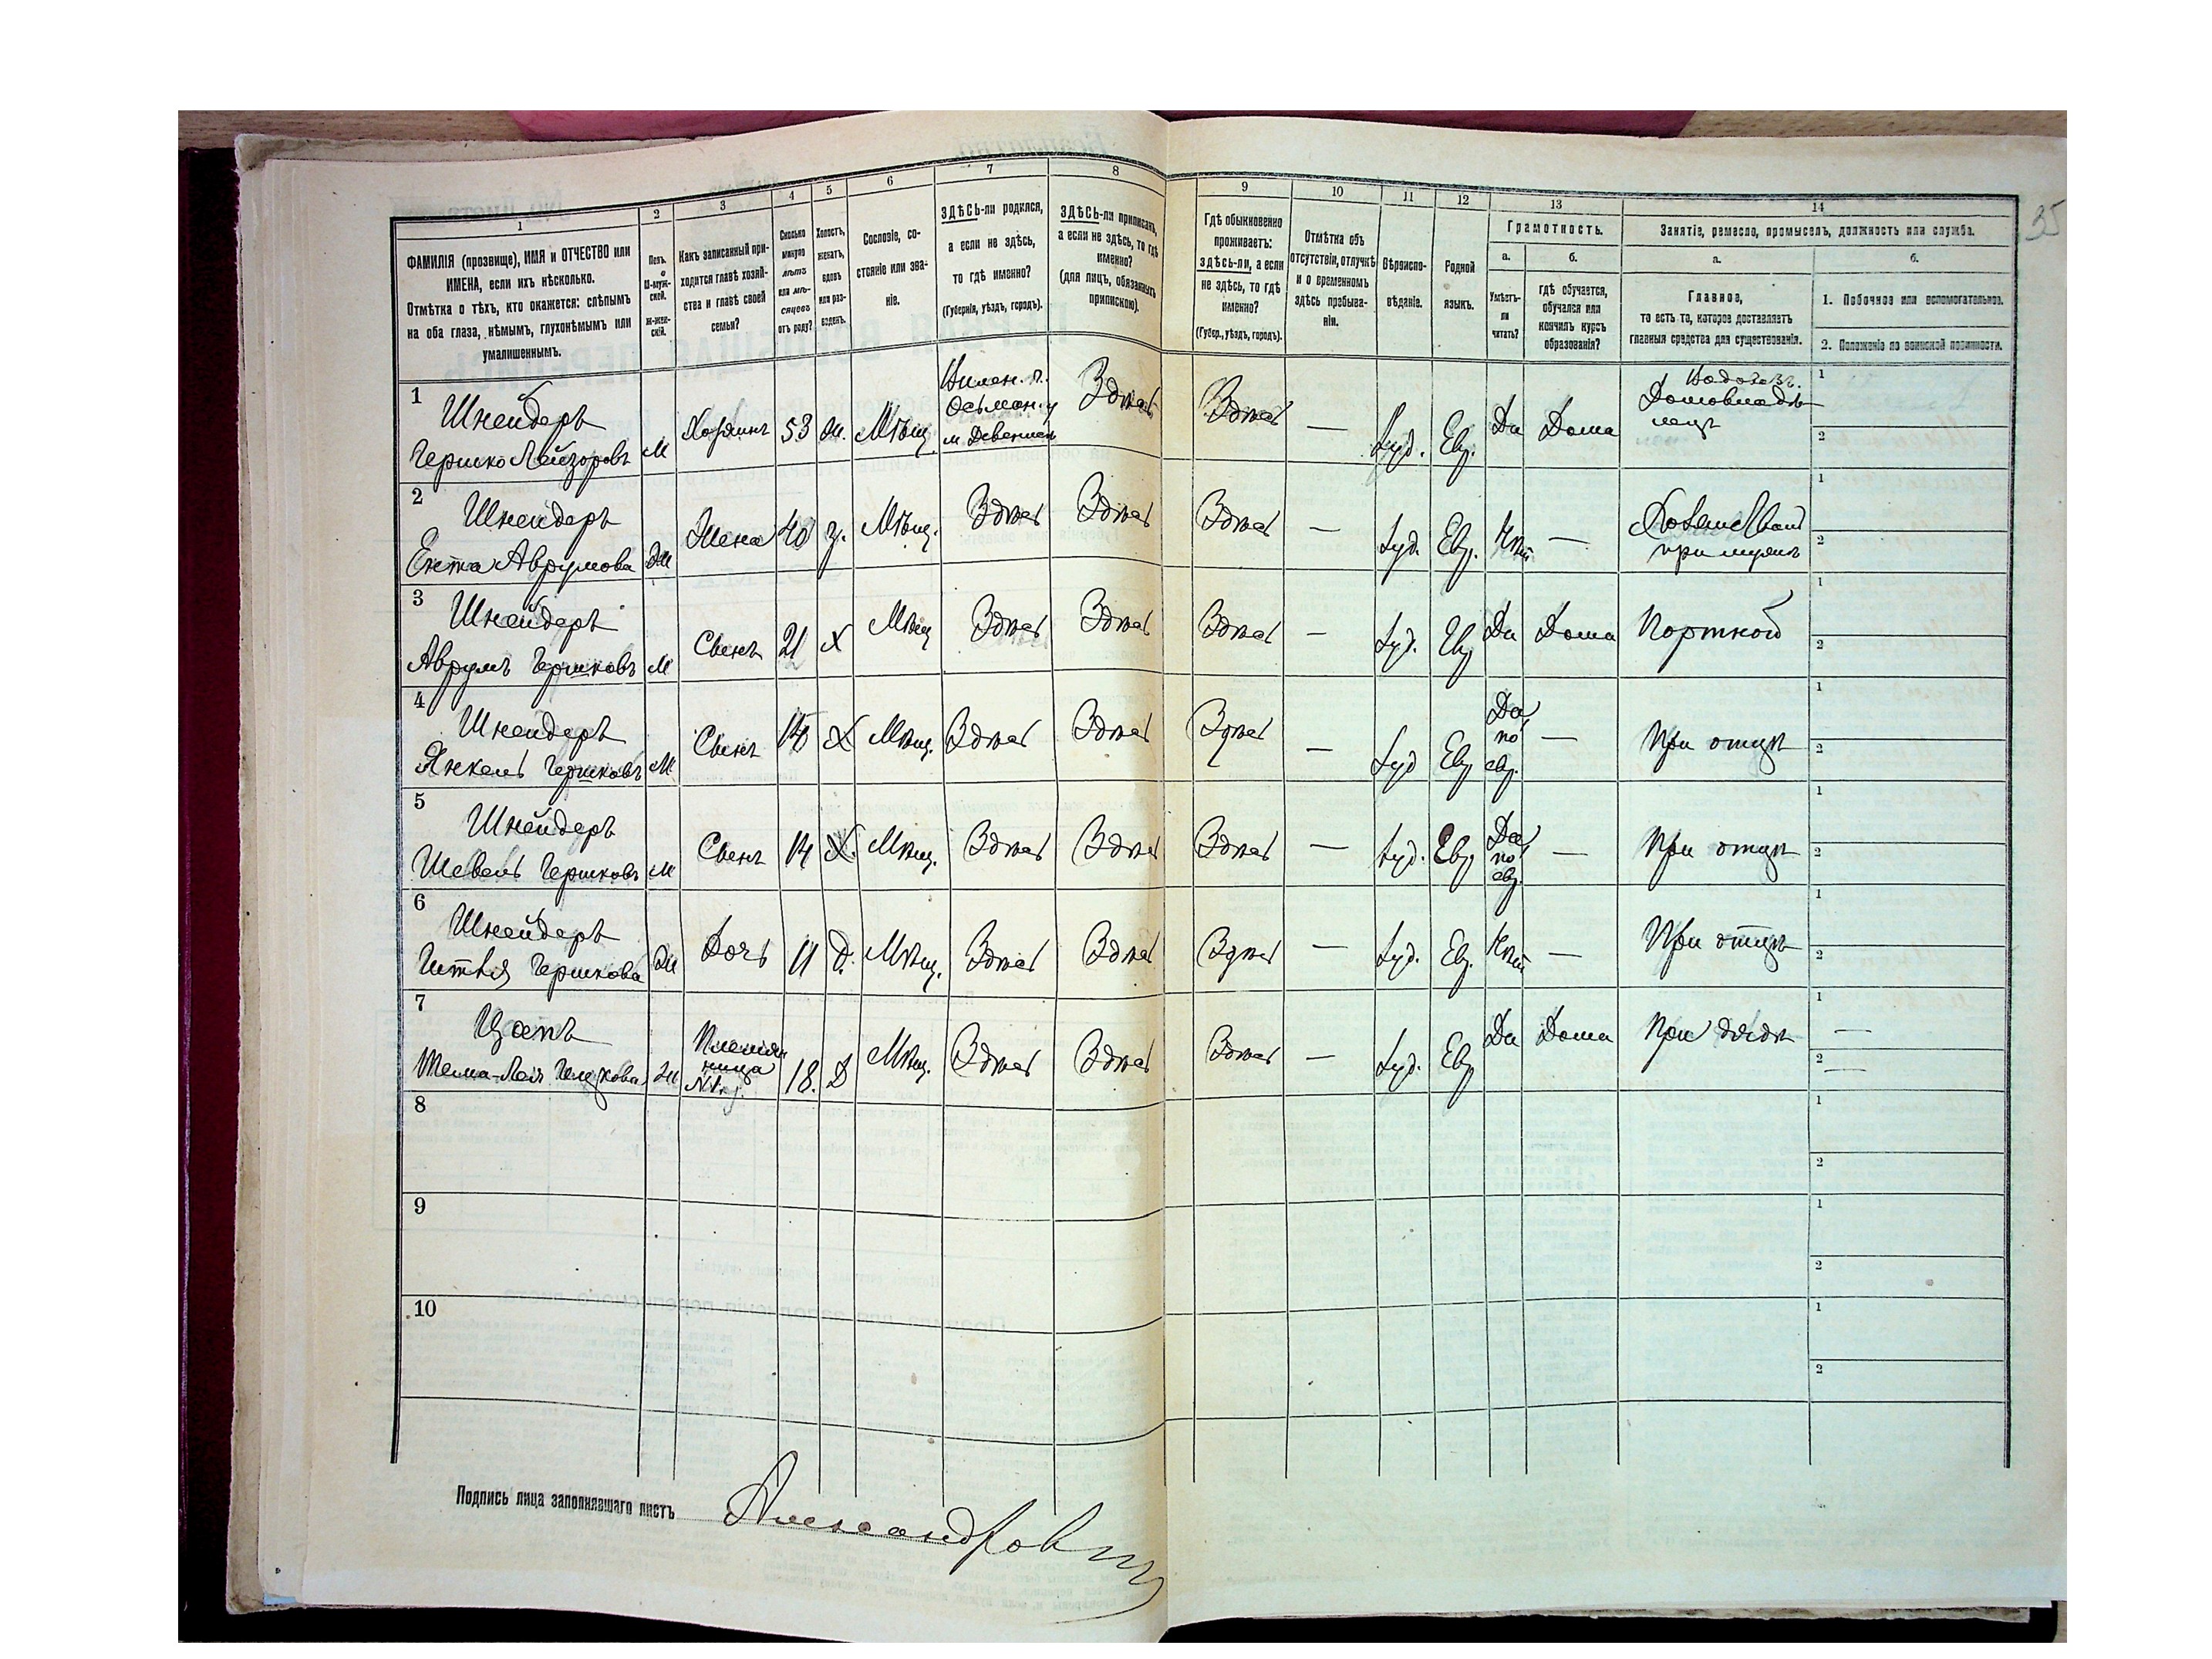 35
1 2 3 4 5 6 7 8 9 10 11 12 13 14
ФАМИЛІЯ (прозвище), ИМЯ и ОТЧЕСТВО или
ИМЕНА, если ихъ нѣсколько.
Отмѣтка о тѣхъ, кто окажется: слѣпымъ
на оба глаза, нѣмымъ, глухонѣмымъ или
умалишеннымъ.
Полъ.
М-муж-
ской.
Ж-жен-
скій.
Какъ записанный при-
ходится главѣ хозяй-
ства и главѣ своей
семьи?
Сколько
минуло
лѣтъ
или мѣ-
сяцевъ
отъ роду?
Холостъ,
женатъ,
вдовъ
или раз-
веденъ.
Сословіе, со-
стояніе или зва-
ніе.
ЗДѢСЬ-ли родился,
а если не здѣсь,
то гдѣ именно?
(Губернія, уѣздъ, городъ).
ЗДѢСЬ-ли приписанъ,
а если не здѣсь, то гдѣ
именно?
(для лицъ, обязанныхъ
припискою).
Гдѣ обыкновенно
проживаетъ:
здѣсь-ли, а если
не здѣсь, то гдѣ
именно?
(Губер., уѣздъ, городъ).
Отмѣтка объ
отсутствіи, отлучкѣ
и о временномъ
здѣсь пребыва-
ніи.
Вѣроиспо-
вѣданіе.
Родной
языкъ.
Грамотность.
а.
Умѣетъ-
ли
читать?
б.
гдѣ обучается,
обучался или
кончилъ курсъ
образованія?
Занятіе, ремесло, промыселъ, должность или служба.
а.
Главное,
то есть то, которое доставляетъ
главныя средства для существованія.
б.
1. Побочное или вспомогательное.
2. Положеніе по воинской повинности.
1
Шнейдеръ
Гершко Лейзоровъ
М
Хозяинъ
53
ж.
Мѣщ.
Вилен. г.
Осьмян. у
м. Девениш
Здѣсь
Здѣсь
—
Іуд.
Евр.
Да
Дома
Водовоз.
Домовладѣ-
лецъ
1
2
2
Шнейдеръ
Ента Аврумова
Ж
Жена
40
з.
Мѣщ.
Здѣсь
Здѣсь
Здѣсь
—
Іуд.
Евр.
Нѣт
—
при мужѣ
1
2
3
Шнейдеръ
Аврумъ Гершковъ
М
Сынъ
21
Х
Мѣщ
Здѣсь
Здѣсь
Здѣсь
—
Іуд.
Евр
Да
Дома
Портной
1
2
4
Шнейдеръ
Янкель Гершковъ
М
Сынъ
Х
Мѣщ.
Здѣсь
Здѣсь
Здѣсь
—
Іуд
Евр
Да
по
евр.
—
При отцѣ
1
2
5
Шнейдеръ
Шевель Гершковъ
М
Сынъ
14
Х.
Мѣщ.
Здѣсь
Здѣсь
Здѣсь
—
Іуд.
Евр
Да
по
евр.
—
При отцѣ
1
2
6
Шнейдеръ
Гитля Гершкова
Ж
Дочь
11
Д.
Мѣщ.
Здѣсь
Здѣсь
Здѣсь
—
Іуд.
Евр.
Нѣт
—
При отцѣ
1
2
7
Цапъ
Ж
Племян
ница
№1.
18.
Д
Мѣщ.
Здѣсь
Здѣсь
Здѣсь
—
Іуд.
Евр
Да
Дома
При дядѣ
1 —
2 —
8
1
2
9
1
2
10
1
2
Подпись лица заполнявшаго листъ Александрович